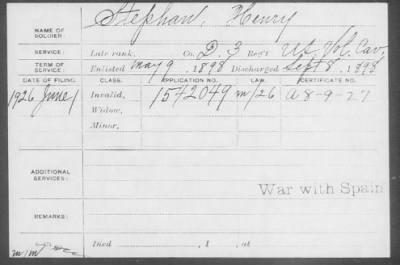 NAME OF SOLDIER: Stephan, Henry
SERVICE: Late rank, Co. D, 3 Reg't US Vol. Cav,
TERM OF SERVICE: Enlisted May 9, 1898 Discharged Sept 8, 1898
DATE OF FILING. CLASS. APPLICATION NO. LAW. CERTIFICATE NO.
1926 June 1 Invalid, 1542049 m/26 A 8-9-27
Widow,
Minor,
ADDITIONAL SERVICES:
War with Spain
REMARKS:
m/m Died , 1 , at